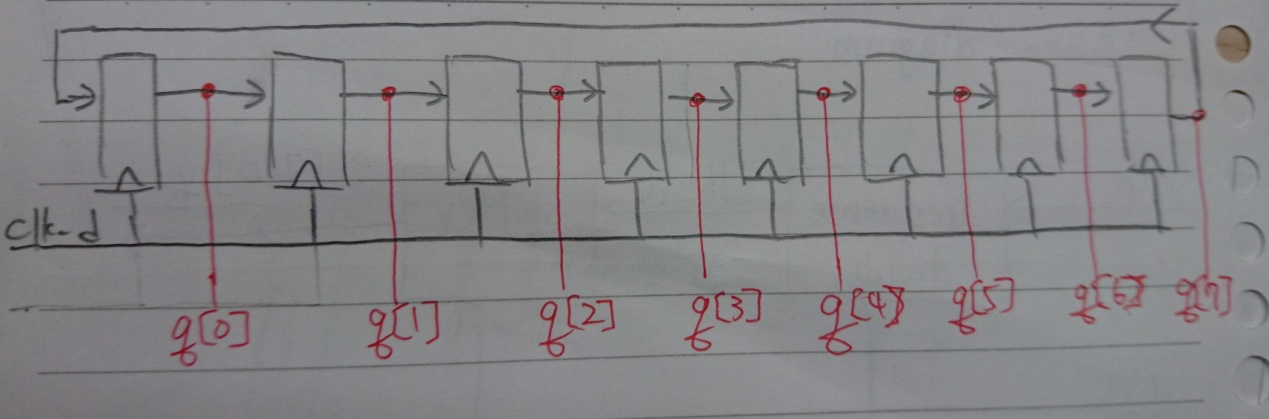 clk_d
q[0] q[1] q[2] q[3] q[4] q[5] q[6] q[7]